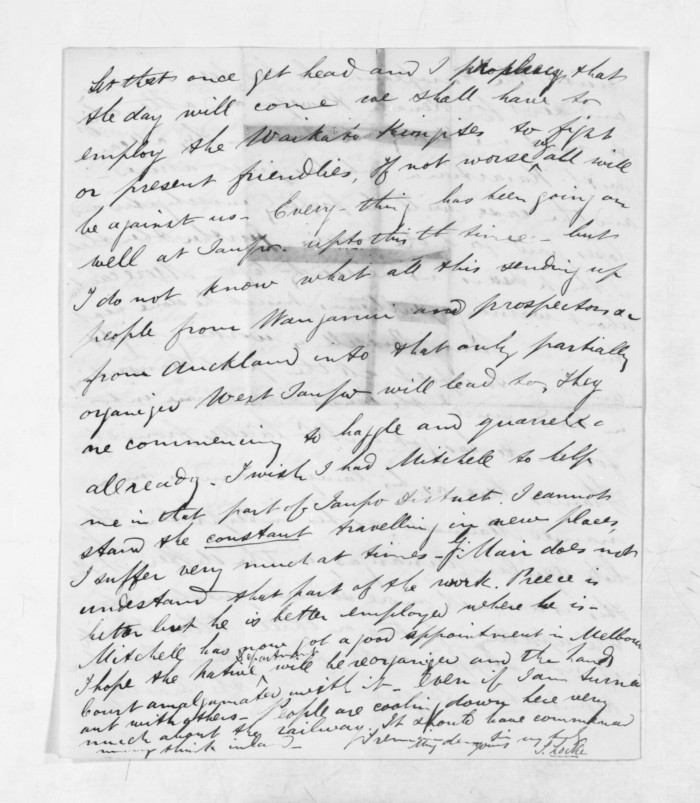 let that once get head and I prophecy, that
the day will come we shall have to
employ the Waikato Kingites to fight
or present friendlies, if not worse, all will
be against us - Every-thing has been going on
well at Taupo up to this time - but
I do not know what all this sending up
people from Wanganui and prospectors
from Auckland into that only partially
organized West Taupo will lead to, They
are commencing to haggle and quarrel
allready. I wish I had Mitchell to help
me in that part of Taupo District. I cannot
stand the constant travelling in new places
I suffer very much at times - G. Mair does not
understand that part of the work. Preece is
better but he is better employed where he is -
Mitchell has now got a good appointment in Melbourne
I hope the Native Department will be reorganized and the Land
Court amalgamated with it - Even if I am turned
out with others - People are cooling down here very
much about the railway. It should have commenced
inland -
I remain
yours
S. Locke